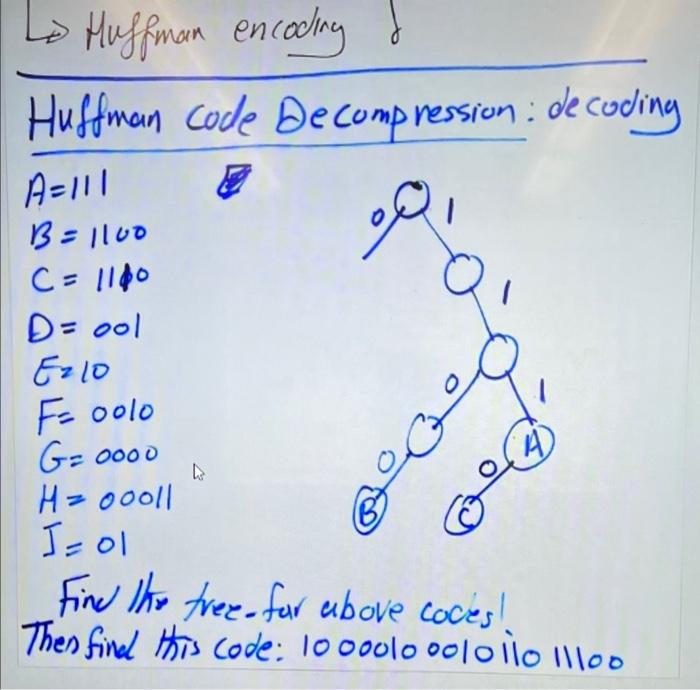 ↳ Huffman encoding
Huffman code Decompression: decoding
A=111
B=1100
C=1110
D=001
E=10
F=0010
G=0000
H=00011
I=01
0 1
1
0 1
0 0
A
B C
Find the tree for above codes!
Then find this code: 10000100010110 11100